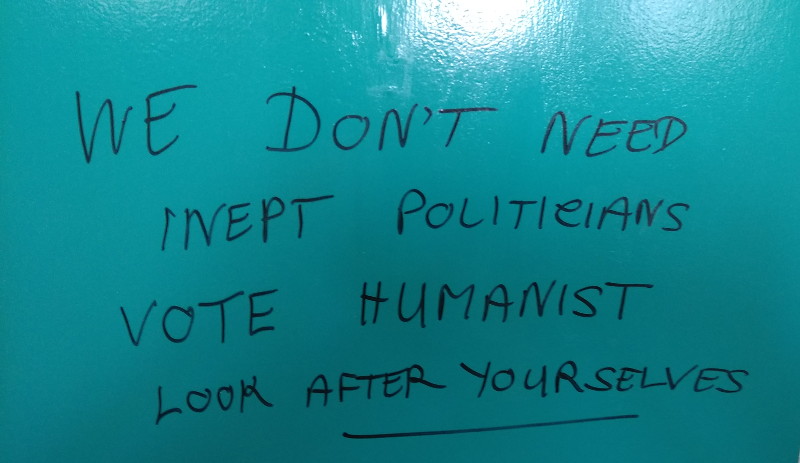 WE DON'T NEED
INEPT POLITICIANS
VOTE HUMANIST
LOOK AFTER YOURSELVES